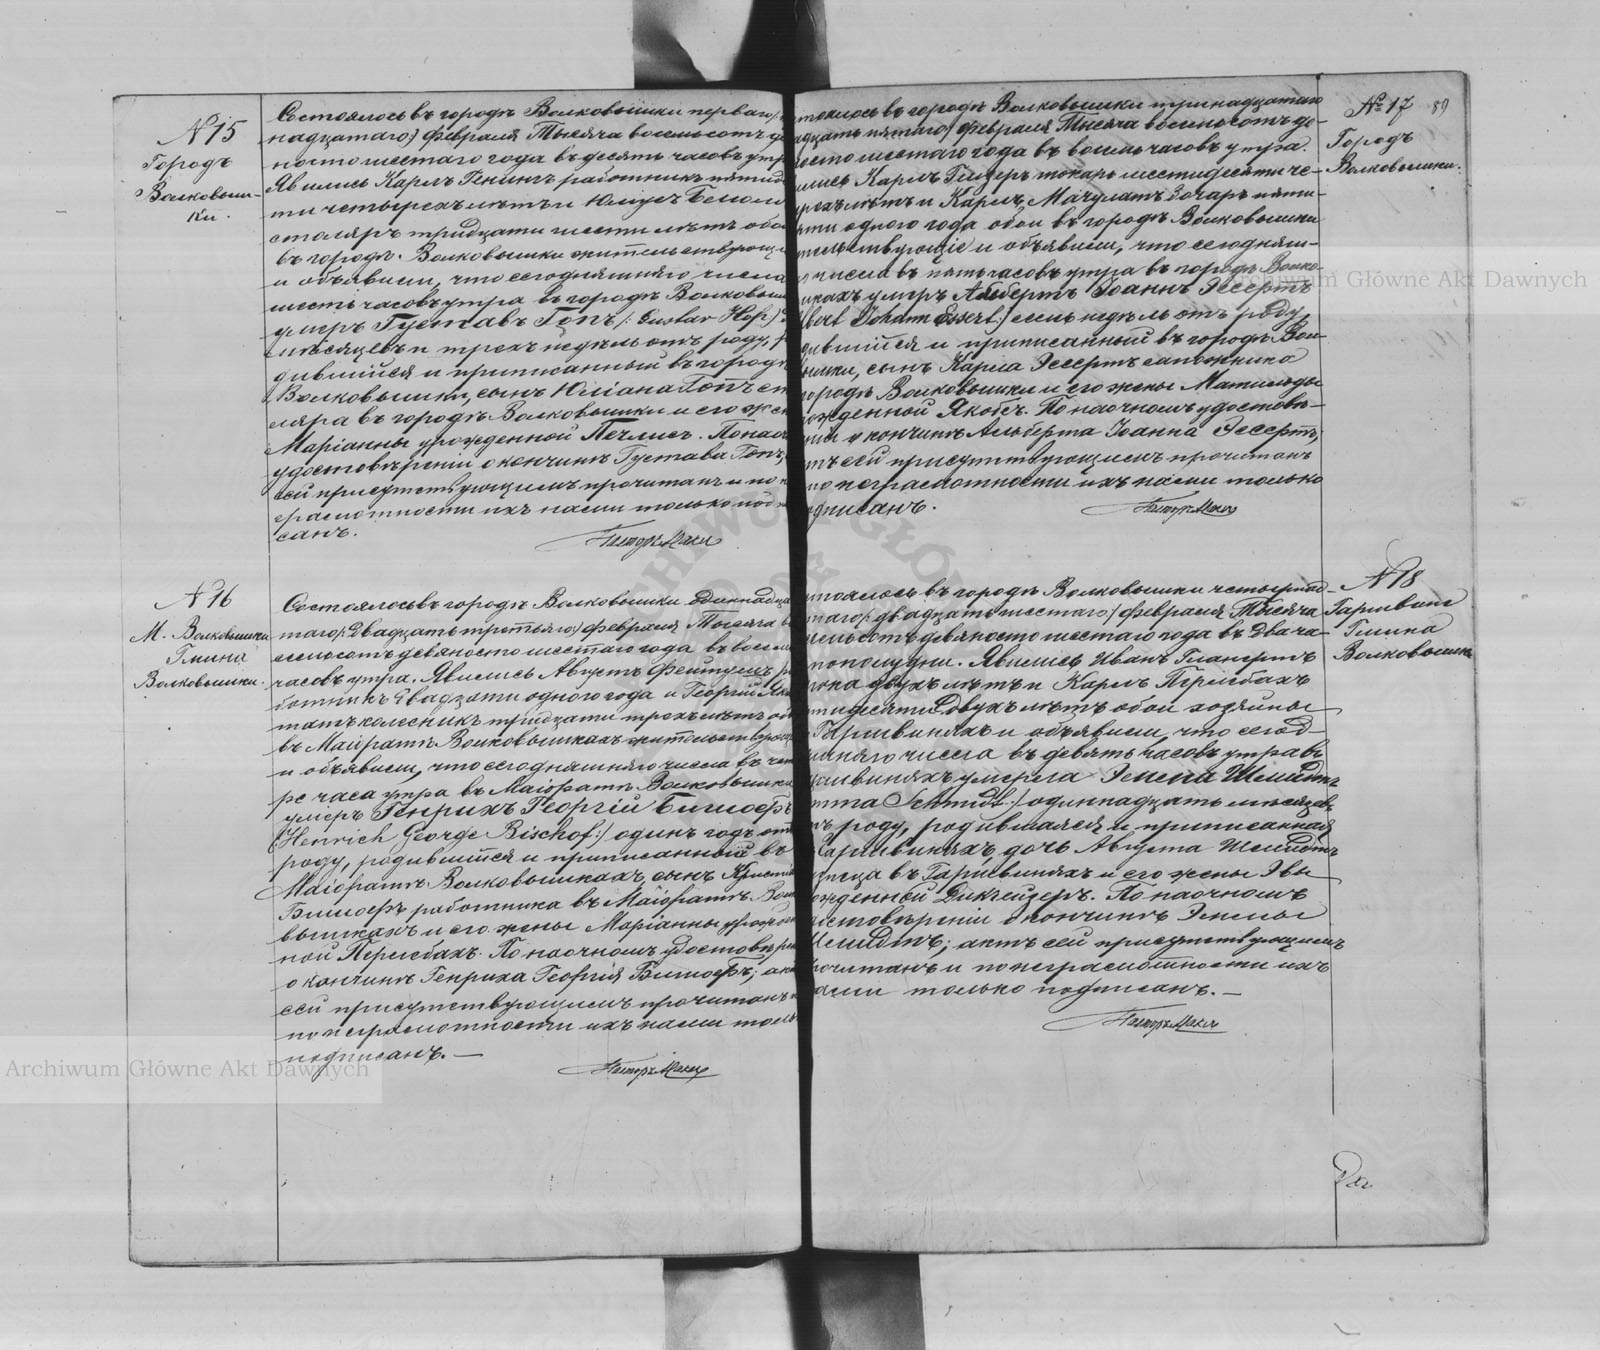 N 15
Городъ
Волковыш-
ки.
Состоялось въ городѣ Волковышки перваго
надцатаго) февраля Тысяча восемьсотъ де
ностошестаго года въ десять часовъ утр
Явились Карлъ Генингъ работникъ пятид
ти четырехъ лѣтъ и Юлiусъ
столяръ тридцати шести лѣтъ обо
въ городѣ Волковышки жительствующ
и объявили, что сегодняшняго числа
шесть часовъ утра въ городѣ Волковыш
умеръ Густавъ Гопъ /: Gustav Hop)
мѣсяцевъ и трехъ недѣль отъ роду, р
дившійся и приписанный въ город
Волковышки, сынъ Юліана Гопъ ст
ляра въ городѣ Волковышки и его жен
Маріанны урожденной Печлисъ. По нао
удостовѣреніи о кончинѣ Густава Гопъ,
сей присутствующимъ прочитанъ и по н
грамотности ихъ нами только под
санъ.
Пасторъ
N 16
М. Волковышки
Гмина
Волковышки.
Состоялось въ городѣ Волковышки Одиннадца
таго /: Двадцать третьяго) февраля Тысяча в
семьсотъ девяностошестаго года въ восемь
часовъ утра. Явились Августъ р
ботникъ двадцати одного года и Георгій
колесникъ тридцати трехъ лѣтъ об
въ Маіоратѣ Волковышкахъ жительствующ
и объявили, что сегодняшняго числа въ чет
ре часа утра въ Маіоратѣ Волковышки
умеръ Генрихъ Георгій Бишофъ
(Henrich George Bischof:) одинъ годъ отъ
роду, родившійся и приписанный въ
Маіоратѣ Волковышкахъ, сынъ
Бишофъ работника въ Маіоратѣ Вол
вышкахъ и его жены Маріанны урожден
ной Перлебахъ. По наочномъ удостовѣре
о кончинѣ Генриха Георгія Бишофъ; ак
сей присутствующимъ прочитанъ и
по неграмотности ихъ нами толь
подписанъ. —
Пасторъ
№ 17 89
Городъ
Волковышки.
стоялось въ городѣ Волковышки тринадцатаго
адцать пятаго) февраля Тысяча восемьсотъ де-
ностошестаго года въ восемь часовъ утра.
вились Карлъ токарь шестидесяти че-
рехъ лѣтъ и Карлъ Мачулатъ пяти-
яти одного года обои въ городѣ Волковышки
тельствующіе и объявили, что сегодняш-
числа въ пять часовъ утра въ городѣ Волко-
шкахъ умеръ Альбертъ Іоаннъ Эссертъ
lbert Johann Essert:) семь недѣль отъ роду,
дившійся и приписанный въ городѣ Вол-
вышки, сынъ Карла Эссертъ сапожника
городѣ Волковышки и его жены Матильды
рожденной Якобсъ. По наочномъ удостовѣ-
ніи о кончинѣ Альберта Іоанна Эссертъ,
тъ сей присутствующимъ прочитанъ
по неграмотности ихъ нами только
одписанъ.
Пасторъ
N 18
Гмина
Волковышки
стоялось въ городѣ Волковышки четырнад-
таго /: двадцать шестаго:) февраля Тысяча
семьсотъ девяностошестаго года въ два ча-
пополудни. Явились Иванъ
рока двухъ лѣтъ и Карлъ Перлебахъ
ятидесяти двухъ лѣтъ обои хозяины
и объявили, что сегод-
шняго числа въ девять часовъ утра въ
умерла Эмма Шмидтъ
mma Schmidt:) одиннадцать мѣсяцев
тъ роду, родившаяся и приписанная
дочь Августа Шмидтъ
въ и его жены Эвы
рожденной По наочномъ
достовѣреніи о кончинѣ Эммы
Шмидтъ; актъ сей присутствующимъ
рочитанъ и по неграмотности ихъ
ами только подписанъ. —
Пасторъ
Archiwum Główne Akt Dawnych
Archiwum Główne Akt Dawnych